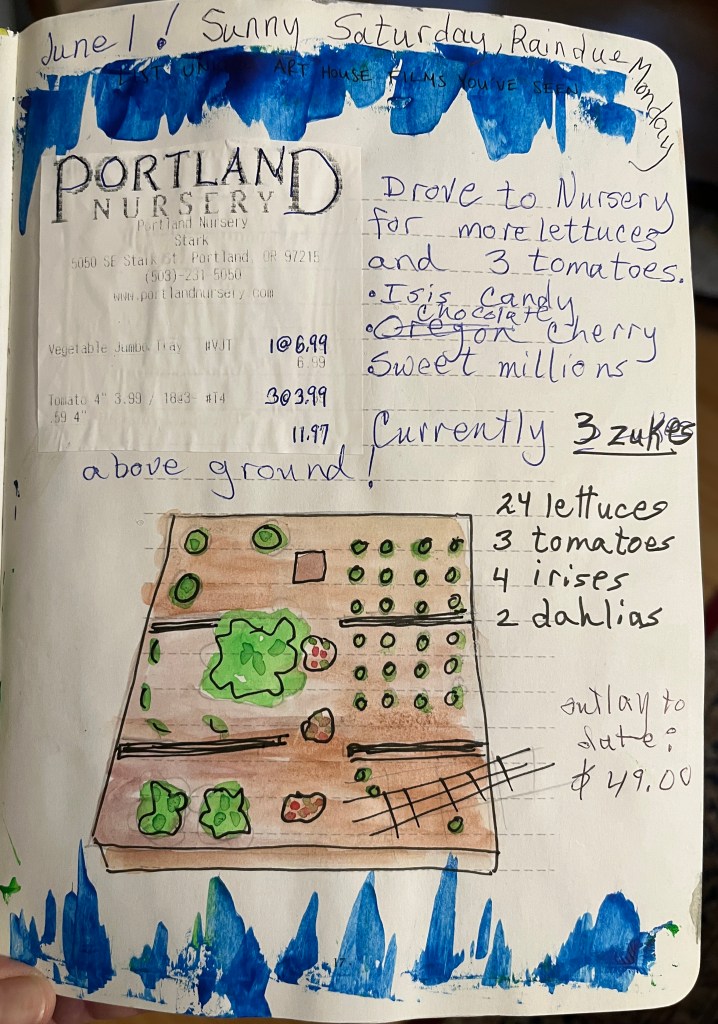 June 1! Sunny Saturday, Rain due Monday
LIST UN ART HOUSE FILMS YOU'VE SEEN
PORTLAND
NURSERY
Portland Nursery
Stark
5050 SE Stark St. Portland, OR 97215
(503)-231-5050
www.portlandnursery.com
Vegetable Jumbo Tray #VJT 1@6.99
6.99
Tomato 4" 3.99 / 18@3- #T4 3@3.99
.59 4"
11.97
Drove to Nursery
for more lettuces
and 3 tomatoes.
• Isis Candy
chocolate
• Oregon Cherry
Sweet millions
Currently 3 zukes
above ground!
24 lettuces
3 tomatoes
4 irises
2 dahlias
outlay to
date:
$ 49.00
17